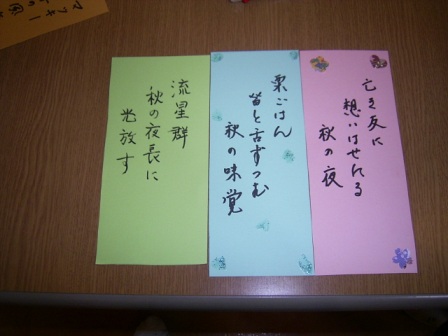 亡き友に
想いはせたる
秋の夜
栗ごはん
皆と舌すつむ
秋の味覚
流星群
秋の夜長に
光放す
マッキー